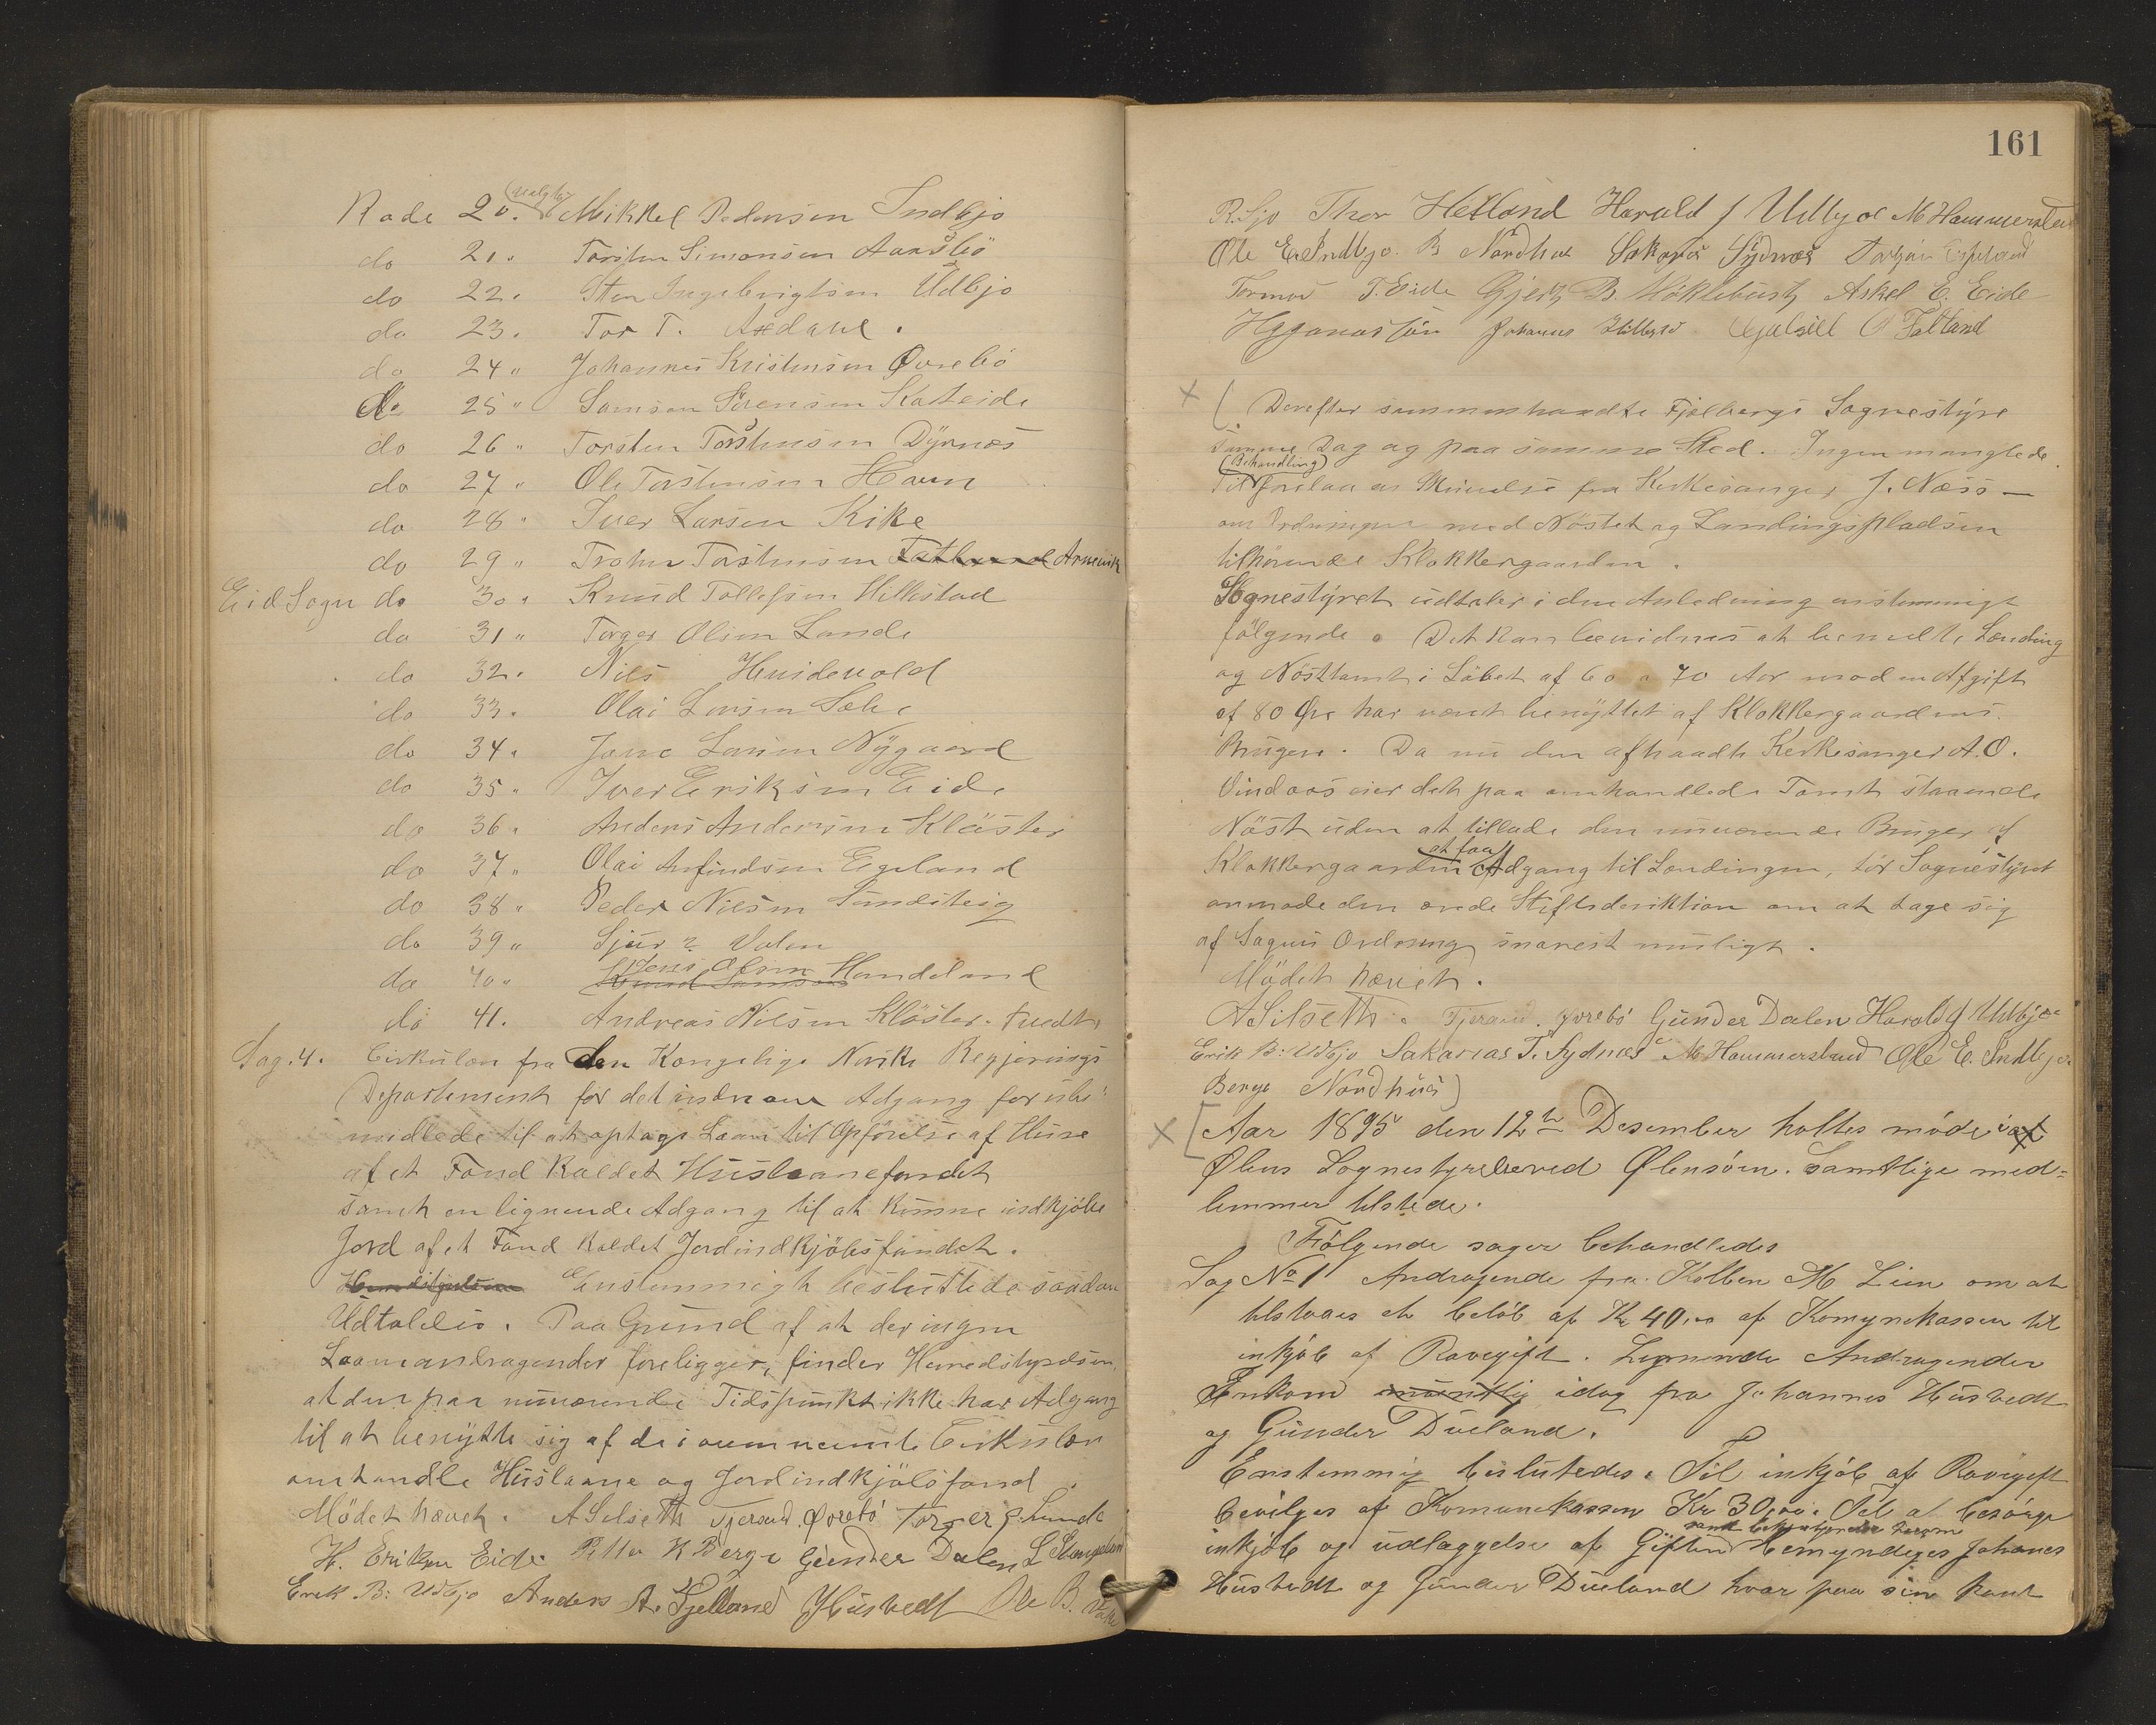 Rode 20. (valgte) Mikkel Pedersen Indbjo
do 21. Torsten Simonsen Aarsbö
do 22. Sten Ingebrigtsen Udbjo
do 23. Tor T. Axdahl.
do 24" Johannes Kristensen Øvrebö
do 25" Samson Sörensen Kasteide
do 26" Torsten Torstensen Dyrnæs
do 27" Ole Torstensen Havn
do 28" Iver Larsen Kike
do 29" Torstensen Fatland Arnevik
Eid Sogn do 30" Knud Tollefsen Hillestad
do 31" Torger Olsen Lunde
do 32. Nils Hvidevold
do 33. Olai Larsen Sæbe
do 34" Jone Larsen Nygaard
do 35" Iver Eriksen Eide
do 36" Anders Andersen Kloster
do 37" Olai Anfindsen Egeland
do 38" Peder Nilsen Sundsteig
do 39" Sjur ? Valen
do 40" Jens Olsen Handeland
do 41. Andreas Nilsen Kloster. Tvedte
Sag. 4. Cirkulær fra den Kongelige Norske Regjerings
Departement for det indre om Adgang for ube-
midlede til at optage Laan til Opförelse af Huse
af et Fond kaldet Huslaanefondet
samt en lignende Adgang til at kunne indkjöbe
Jord af et Fond kaldet Jordindkjöbsfondet.
Enstemmigt besluttede saadan
Udtalelse. Paa Grund af at der ingen
Laaneandragender foreligger, finder Herredstyrelsen,
at den paa nuværende Tidspunkt ikke har Adgang
til at benytte sig af de i ovennevnte Cirkulær
omhandlede Huslaane og Jordindkjöbsfond.
Mödet hævet. A Silseth Tjerand. Øvrebö Torger O. Lunde
H. Eriksen Eide Peller K Berge Gunder Dalen L
Erik B. Udbjo Anders A. Fjelland J Husvedt Ole B. Vake
161
R. Sjo Thor Hetland Harald J Udbjoe M Hammersland
Ole E. Indbjo. B Nordhus Sakarias Sydnes
Tormod T. Eide Gjert B. Möklebust Askel E. Eide
Johannes O Fatland
Derefter sammenhandte Fjelbergs Sognestyre
samme Dag og paa samme Sted. Ingen manglede.
Til (Behandling) forelaa en Skrivelse fra Kirkesanger J. Næss —
om Ordningen med Nöstet og Landingspladsen
tilhörende Klokkergaarden.
Sognestyret udtaler i den Anledning enstemmigt
fölgende. Det kan bevidnes at benevnte Landing
og Nösttomt i Löbet af 60 a 70 Aar mod en Afgift
af 80 Øre har været benyttet af Klokkergaardens
Bruger. Da nu den afhaadte Kirkesanger A. O.
Vindaas eier det paa omhandlede Tomt staaende
Nöst uden at tillade den nuværende Bruger af
Klokkergaarden at faa Adgang til Landingen, tör Sognestyret
anmode den ærede Stiftsdirektion om at tage sig
af Sagens Ordning snarest muligt.
Mödet hævet.
A Silseth. Tjerand. Øvrebö Gunder Dalen Harald J Udbjoe
Erik B. Udbjo Sakarias T. Sydnes M Hammersland Ole E. Indbjo.
Berge Nordhus)
Aar 1895 den 12te Desember holtes möde i
Ølens Sognestyrelse ved Ølensöen. Samtlige med-
lemmer tilstede.
Fölgende sager behandledes
Sag No 1 Andragende fra Kolben M. Lien om at
tilstaaes et belöb af Kr 40,00 af Komunekassen til
inkjöb af Ravegift. Lignende Andragender
Inkom mundtlig idag fra Johannes Husvedt
og Gunder Dueland.
Enstemmig beslutedes. Til inkjöb af Ravegift
bevilges af Komunekassen Kr 30,00. Til at besörge
inkjöb og udlæggelse af Giften samt bekjentgjörelse herom bemyndiges Johanes
Husvedt og Gunder Dueland hver paa sin kant